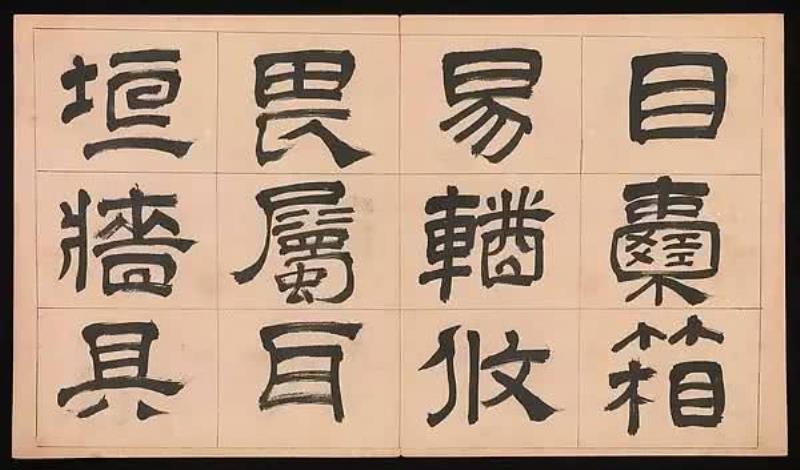 目囊箱
易輶攸
畏屬耳
垣牆具